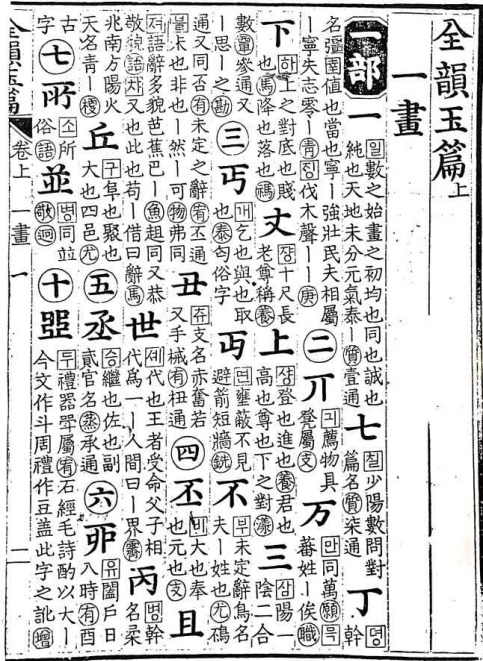 全韻玉篇上
一畫
一部 一 일數之始畫之初均也同也誠也純也天地未分元氣泰一質壹通 七 칠少陽數問對篇名質柒通 丁 뎡幹
名彊圉値也當也寧一強壯民夫相屬一寧失志零一靑징伐木聲一一庚 二 丌 긔薦物具凳屬支 万 만同萬願믁蕃姓一俟職
下 하上之對底也賤也馬降也落也禡 丈 쟝十尺長老尊稱養 上 샹登也進也養君也高也尊也下之對漾 三 삼陽一陰二合
數覃參通又一思一之勘 三 丐 개乞也與也取也泰匃俗字 丏 면壅蔽不見避箭短牆銑 不 부未定辭鳥名夫一姓也尤鴀
通又同否有未定之辭宥丕通불未也非也一然一可物弗同 丑 츄支名赤奮若又手械有杻通 四 丕 비大也奉也元也支 且
져語辭多貌芭蕉巴一魚趄同又恭敬貌語차又也此也苟一借曰辭馬 世 셰代也王者受命父子相代爲一一人間曰一界霽 丙 병幹名柔
兆南方陽火天名靑一梗 丘 구阜也聚也大也四邑尤 五 丞 승繼也佐也副貳官名蒸承通 六 丣 유闔戶日八時有酉
古字 七 所 소所俗語 並 병同竝敬迥 十 두禮器斝屬宥石經毛詩酌以大一今文作斗周禮作豆蓋此字之訛增
全韻玉篇 卷上 一畫 一 二